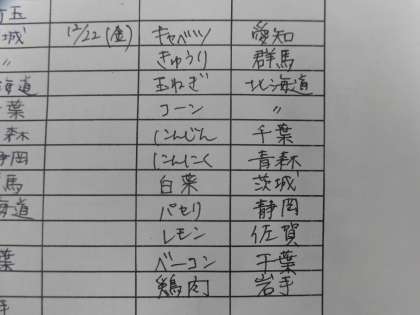 埼玉
茨城 12/22(金) キャベツ 愛知
〃 きゅうり 群馬
北海道 玉ねぎ 北海道
千葉 コーン 〃
青森 にんじん 千葉
静岡 にんにく 青森
群馬 白菜 茨城
北海道 パセリ 静岡
レモン 佐賀
千葉 ベーコン 千葉
鶏肉 岩手
岩手